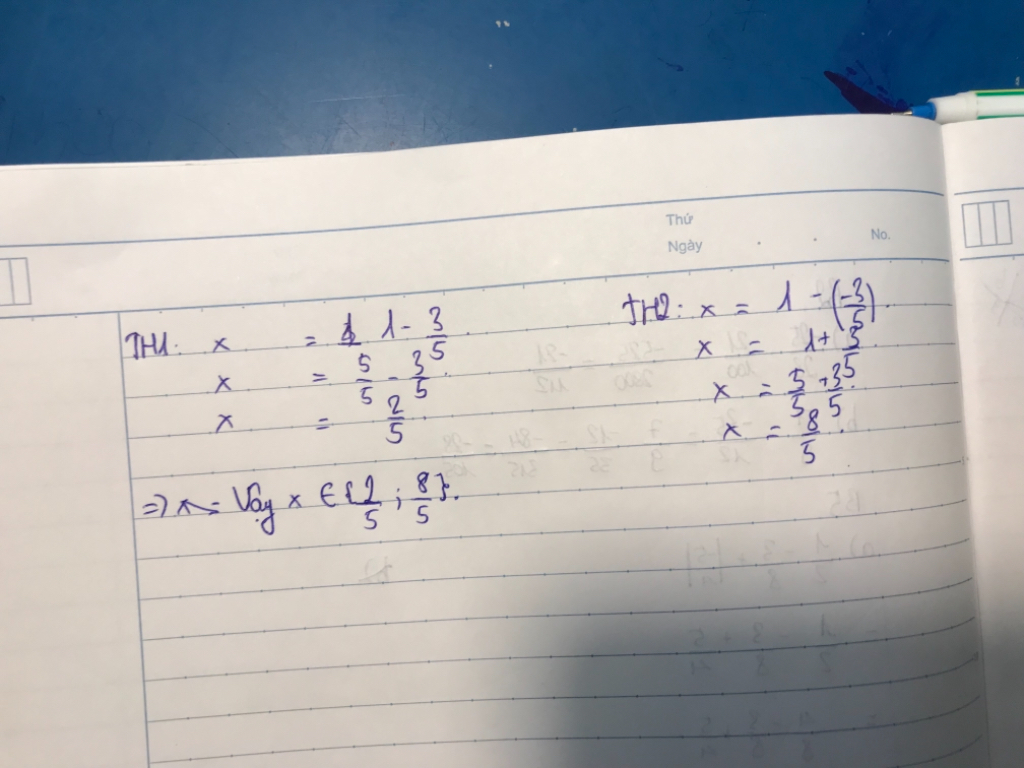 Thứ
Ngày
No.
TH1: x = 1 - 3/5.
x = 5/5 - 3/5.
x = 2/5
TH2: x = 1 - (-3/5).
x = 1 + 3/5
x = 5/5 + 3/5.
x = 8/5.
=> x = Vậy x ∈ {2/5 ; 8/5}.